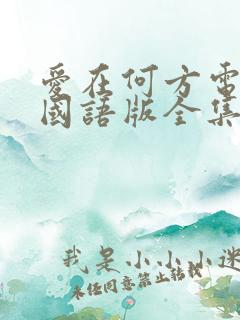 愛在何方電
國語版全集
我是小小小迷
未任同意禁止转载